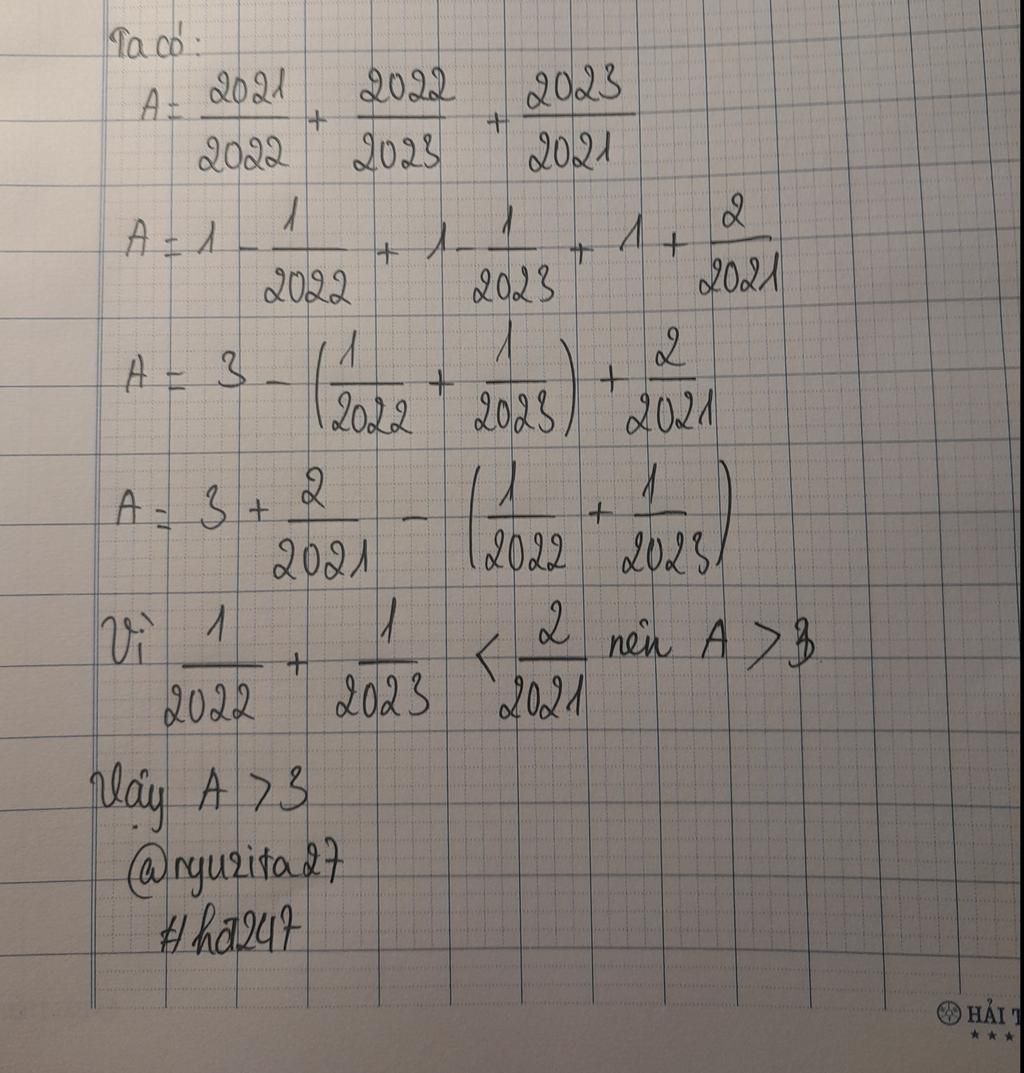 Ta có:
A = 2021/2022 + 2022/2023 + 2023/2021
A = 1 - 1/2022 + 1 - 1/2023 + 1 + 2/2021
A = 3 - (1/2022 + 1/2023) + 2/2021
A = 3 + 2/2021 - (1/2022 + 1/2023)
Vì 1/2022 + 1/2023 < 2/2021 nên A > 3
Vậy A > 3
@ryuzita27
#hđ247
HẢI